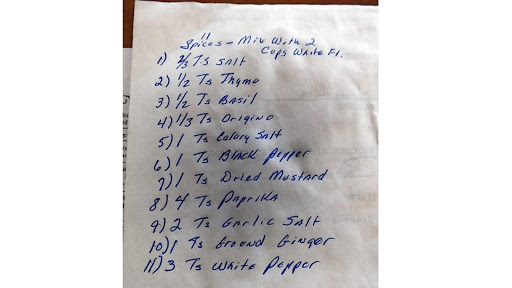 11
Spices - Mix With 2
Cups White Fl.
1) 2/3 Ts Salt
2) 1/2 Ts Thyme
3) 1/2 Ts Basil
4) 1/3 Ts Origino
5) 1 Ts Celory Salt
6) 1 Ts Black Pepper
7) 1 Ts Dried Mustard
8) 4 Ts Paprika
9) 2 Ts Garlic Salt
10) 1 Ts Ground Ginger
11) 3 Ts White Pepper